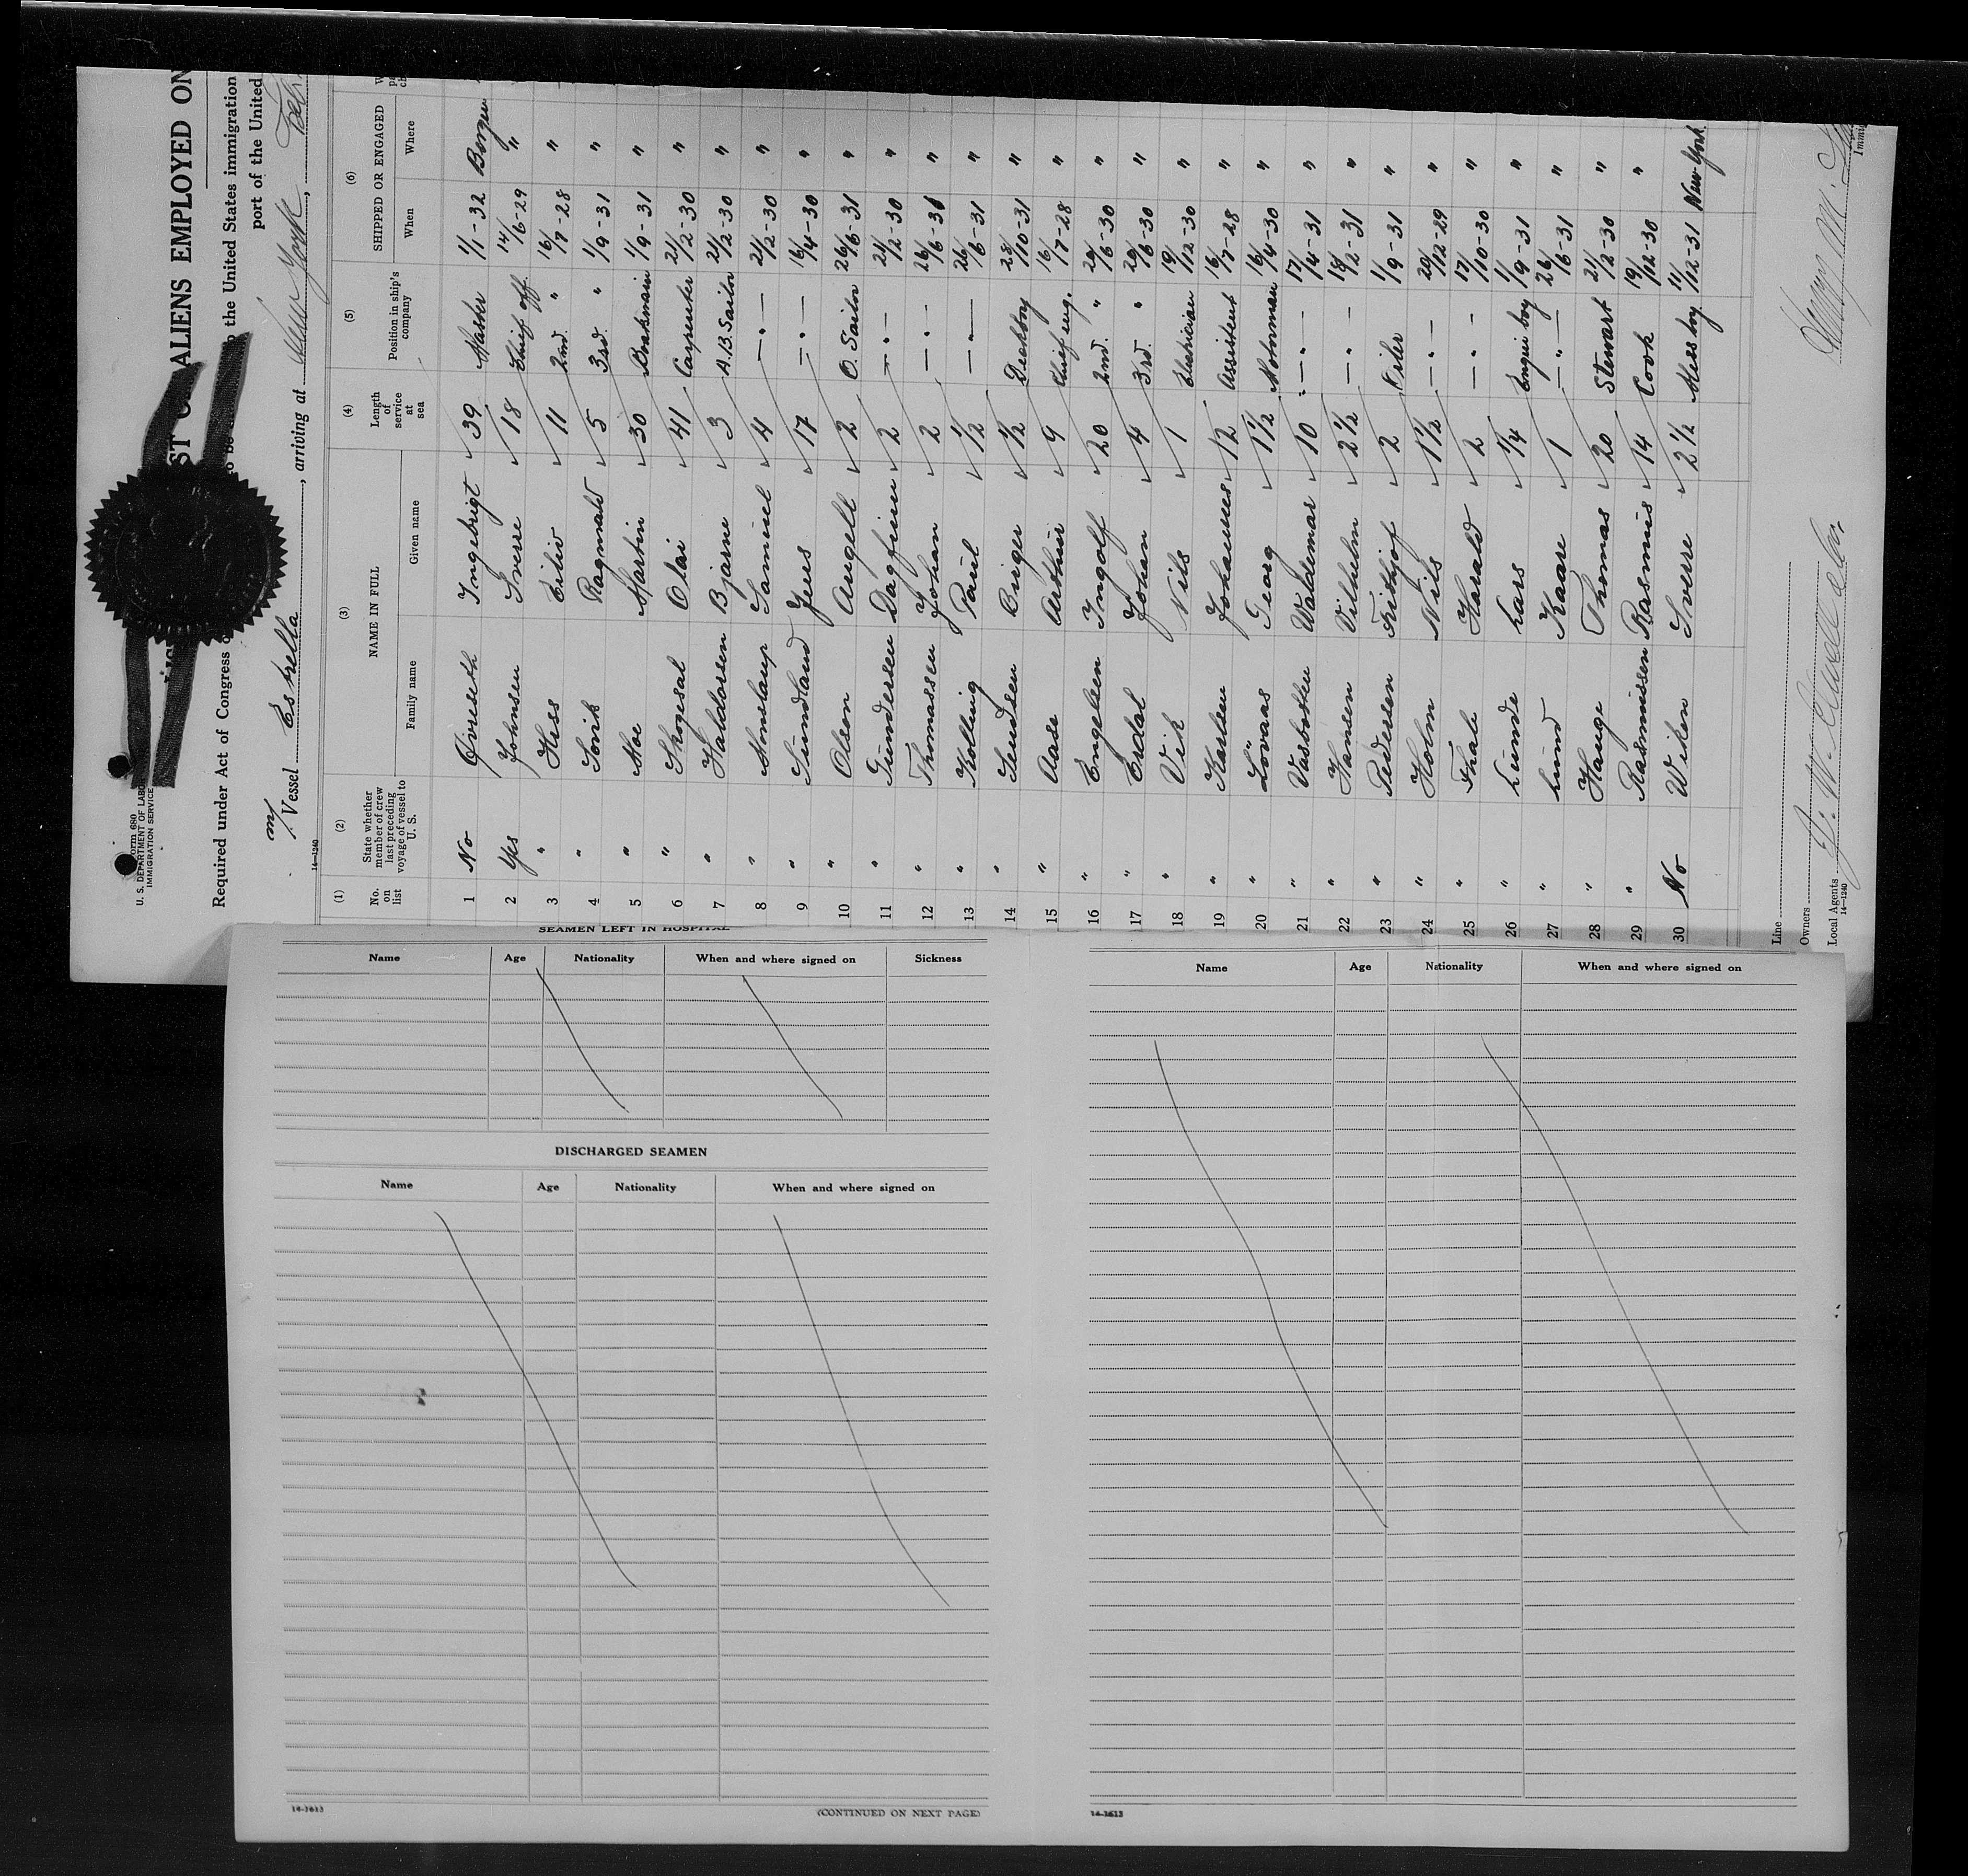 Form 680
U. S. DEPARTMENT OF LABOR
IMMIGRATION SERVICE
ALIENS EMPLOYED ON
Required under Act of Congress
the United States immigration
port of the United
m/ Vessel Estrella, arriving at New York, Feb.
14—1240
(1) (2) (3) (4) (5) (6)
No. on list State whether member of crew last preceding voyage of vessel to U. S. NAME IN FULL Length of service at sea Position in ship's company SHIPPED OR ENGAGED
Family name Given name When Where
1 No Øvreseth Ingebrigt 39 Master 1/1-32 Bergen
2 Yes Johnsen Sverre 18 Chief off. 14/6-29 "
3 " Hess Eiliv 11 2nd. " 16/7-28 "
4 " Sørvik Ragnvald 5 3rd. " 1/9-31 "
5 " Moe Martin 30 Boatswain 1/9-31 "
6 " Skogesal Olai 41 Carpenter 21/2-30 "
7 " Haldorsen Bjarne 3 A.B. Sailor 21/2-30 "
8 " Monslaup Samuel 4 — " — 21/2-30 "
9 " Sundland Jens 17 — " — 16/4-30 "
10 " Olsen Angell 2 O. Sailor 26/6-31 "
11 " Gundersen Dagfinn 2 — " — 21/2-30 "
12 " Thomassen Johan 2 — " — 26/6-31 "
13 " Kolling Paul 1/2 — " — 26/6-31 "
14 " Sendsen Birger 1/2 Deckboy 28/10-31 "
15 " Aase Arthur 9 Chief eng. 16/7-28 "
16 " Engelsen Ingolf 20 2nd. " 20/6-30 "
17 " Erdal Johan 4 3rd. " 20/6-30 "
18 " Vik Nils 1 Electrician 19/12-30 "
19 " Karlsen Johannes 12 Assistent 16/7-28 "
20 " Lövaas Georg 1 1/2 Motorman 16/4-30 "
21 " Vasbotten Waldemar 10 — " — 17/4-31 "
22 " Hansen Vilhelm 2 1/2 — " — 18/2-31 "
23 " Pedersen Fridtjof 2 Oiler 1/9-31 "
24 " Holm Nils 1 1/2 — " — 20/12-29 "
25 " Thale Harald 2 — " — 17/10-30 "
26 " Lunde Lars 1/4 Engin boy 1/9-31 "
27 " Lund Kaare 1 — " — 26/6-31 "
28 " Hauge Thomas 20 Stewart 21/2-30 "
29 " Rasmussen Rasmus 14 Cook 19/12-30 "
30 No Wiken Sverre 2 1/2 Messboy 11/12-31 New-York
Line
Owners
Local Agents
14—1240
SEAMEN LEFT IN HOSPITAL
Name Age Nationality When and where signed on Sickness
DISCHARGED SEAMEN
Name Age Nationality When and where signed on
14-1613
(CONTINUED ON NEXT PAGE)
Name Age Nationality When and where signed on
14-1613